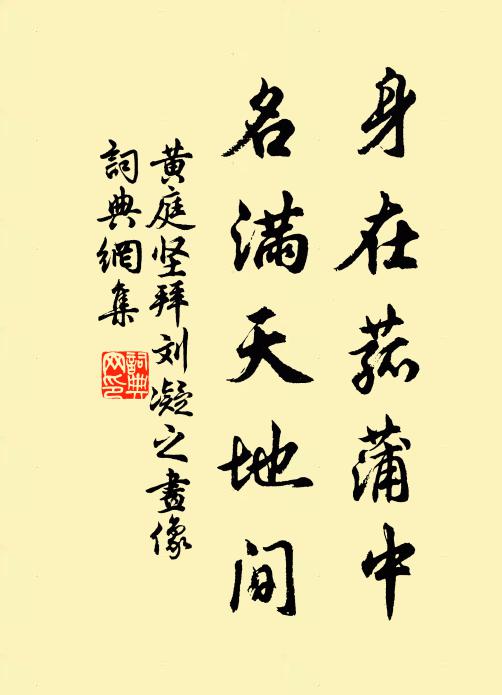 身在菰蒲中
名满天地间
黄庭坚拜刘凝之畫像
詞典網集
詞典网印